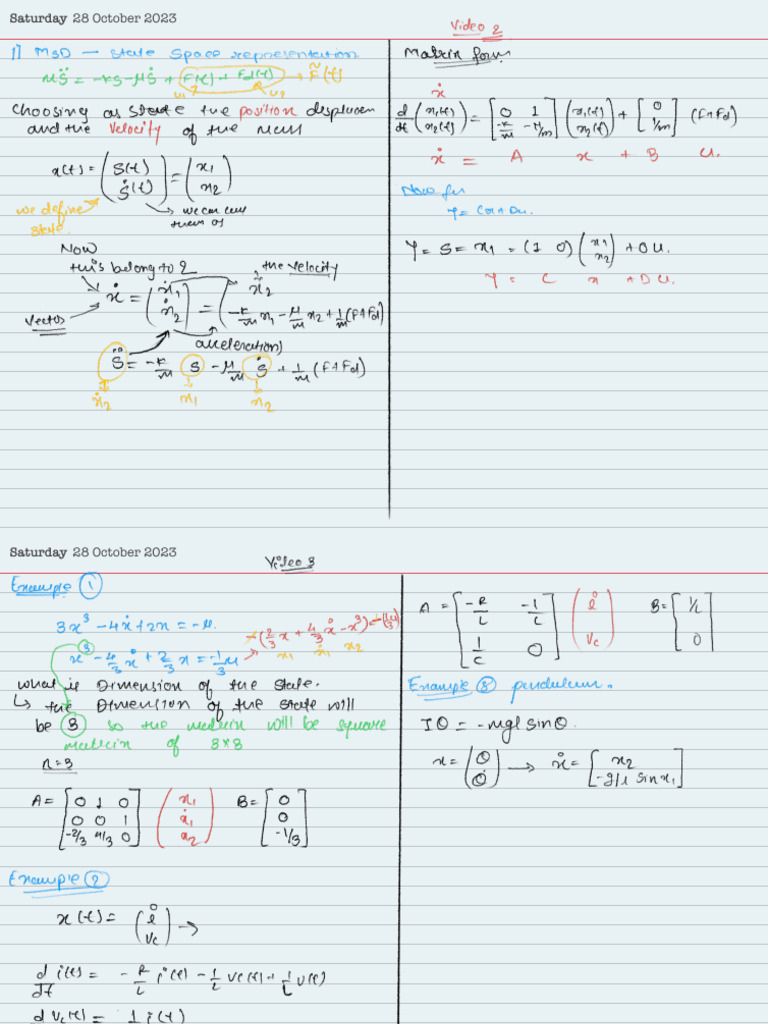 Saturday 28 October 2023
Video 2
1] MSD — State Space representation
ms̈ = -ks - μṡ + F(t) + Fd(t) → F̃(t)
u1 u2
Choosing as state the position displacem
and the velocity of the mass
x(t) = (s(t) ṡ(t)) = (x1 x2)
we define state.
→ we can call them as
Now
this belong to 2
the velocity
Vector
ẋ = (ẋ1 ẋ2) = (x2 -k/m x1 - μ/m x2 + 1/m (F+Fd)
acceleration)
s̈ = -k/m s - μ/m ṡ + 1/m (F+Fd)
ẋ2 x1 x2
Matrix form
ẋ
d/dt (x1(t) x2(t)) = [0 1 -k/m -μ/m] (x1(t) x2(t)) + [0 1/m] (F+Fd)
ẋ = A x + B u.
Now for
y = Cx + Du.
Y = S = x1 = (1 0) (x1 x2) + 0 u.
Y = C x + D u.
Saturday 28 October 2023
Video 3
Example 1
3x³ - 4ẋ + 2x = -u.
x³ - 4/3 ẋ + 2/3 x = -1/3 u
x1 ẋ1 x2
what is Dimension of the state.
↳ the Dimension of the state will
be 3 so the matrix will be square
matrix of 3x3
n=3
A = [0 1 0 0 0 1 -2/3 4/3 0] (x1 ẋ1 x2) B = [0 0 -1/3]
Example 2
x(t) = (i vc) →
d/dt i(t) = -R/L i(t) - 1/L Vc(t) + 1/L V(t)
d Vc(t) = 1 i(t)
A = [-R/L -1/L 1/C 0] (i vc) B = [1/L 0]
Example 3 pendulum.
Iθ = -mgl sinθ.
x = (θ θ̇) → ẋ = [x2 -g/l sin x1]